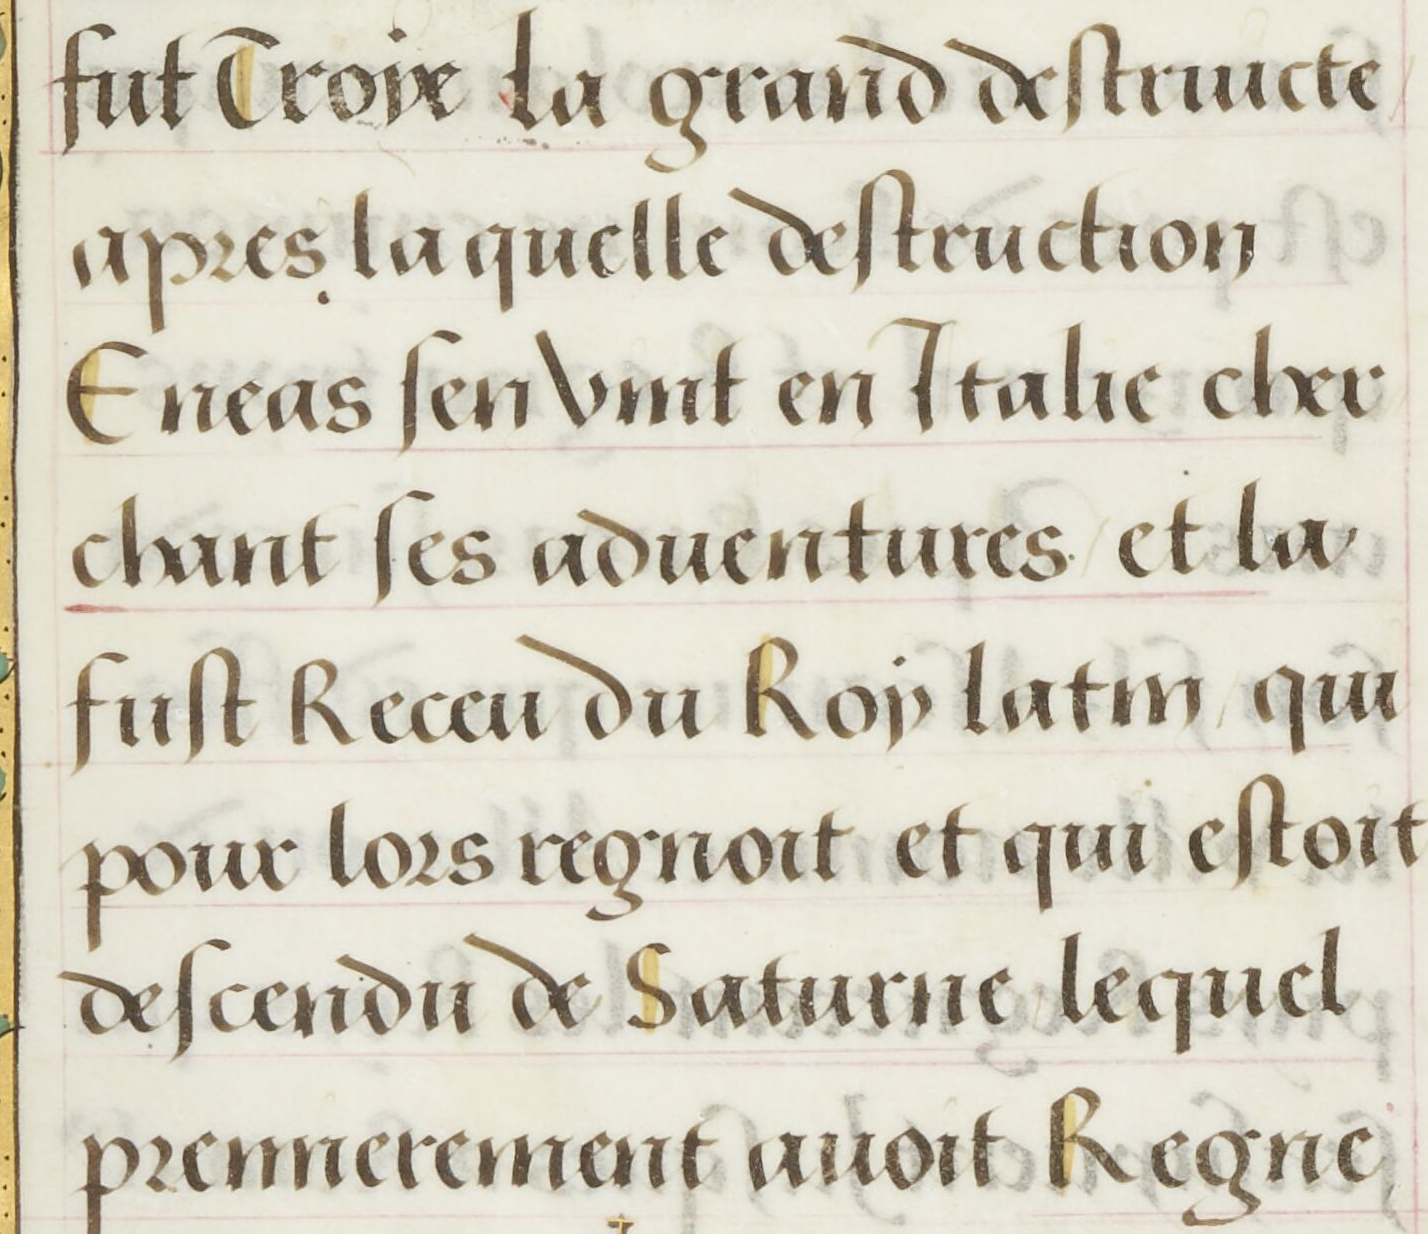 fut Troye la grand destructe
apres laquelle destruction
Eneas sen vint en Italie cher
chant ses aduentures et la
fust Receu du Roy latin / qui
pour lors regnoit et qui estoit
descendu de Saturne lequel
premierement auoit Regne